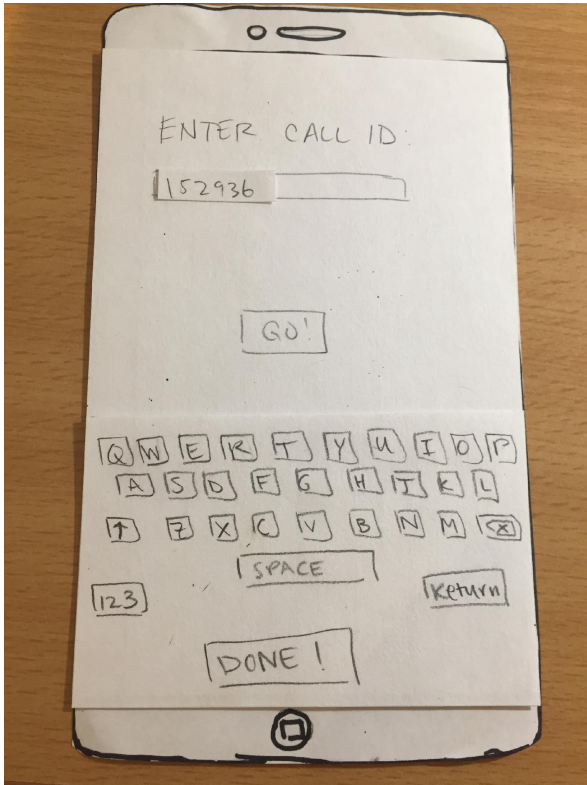 ENTER CALL ID:
152936
GO!
Q W E R T Y U I O P
A S D F G H J K L
↑ Z X C V B N M ⌫
SPACE
123 Return
DONE!